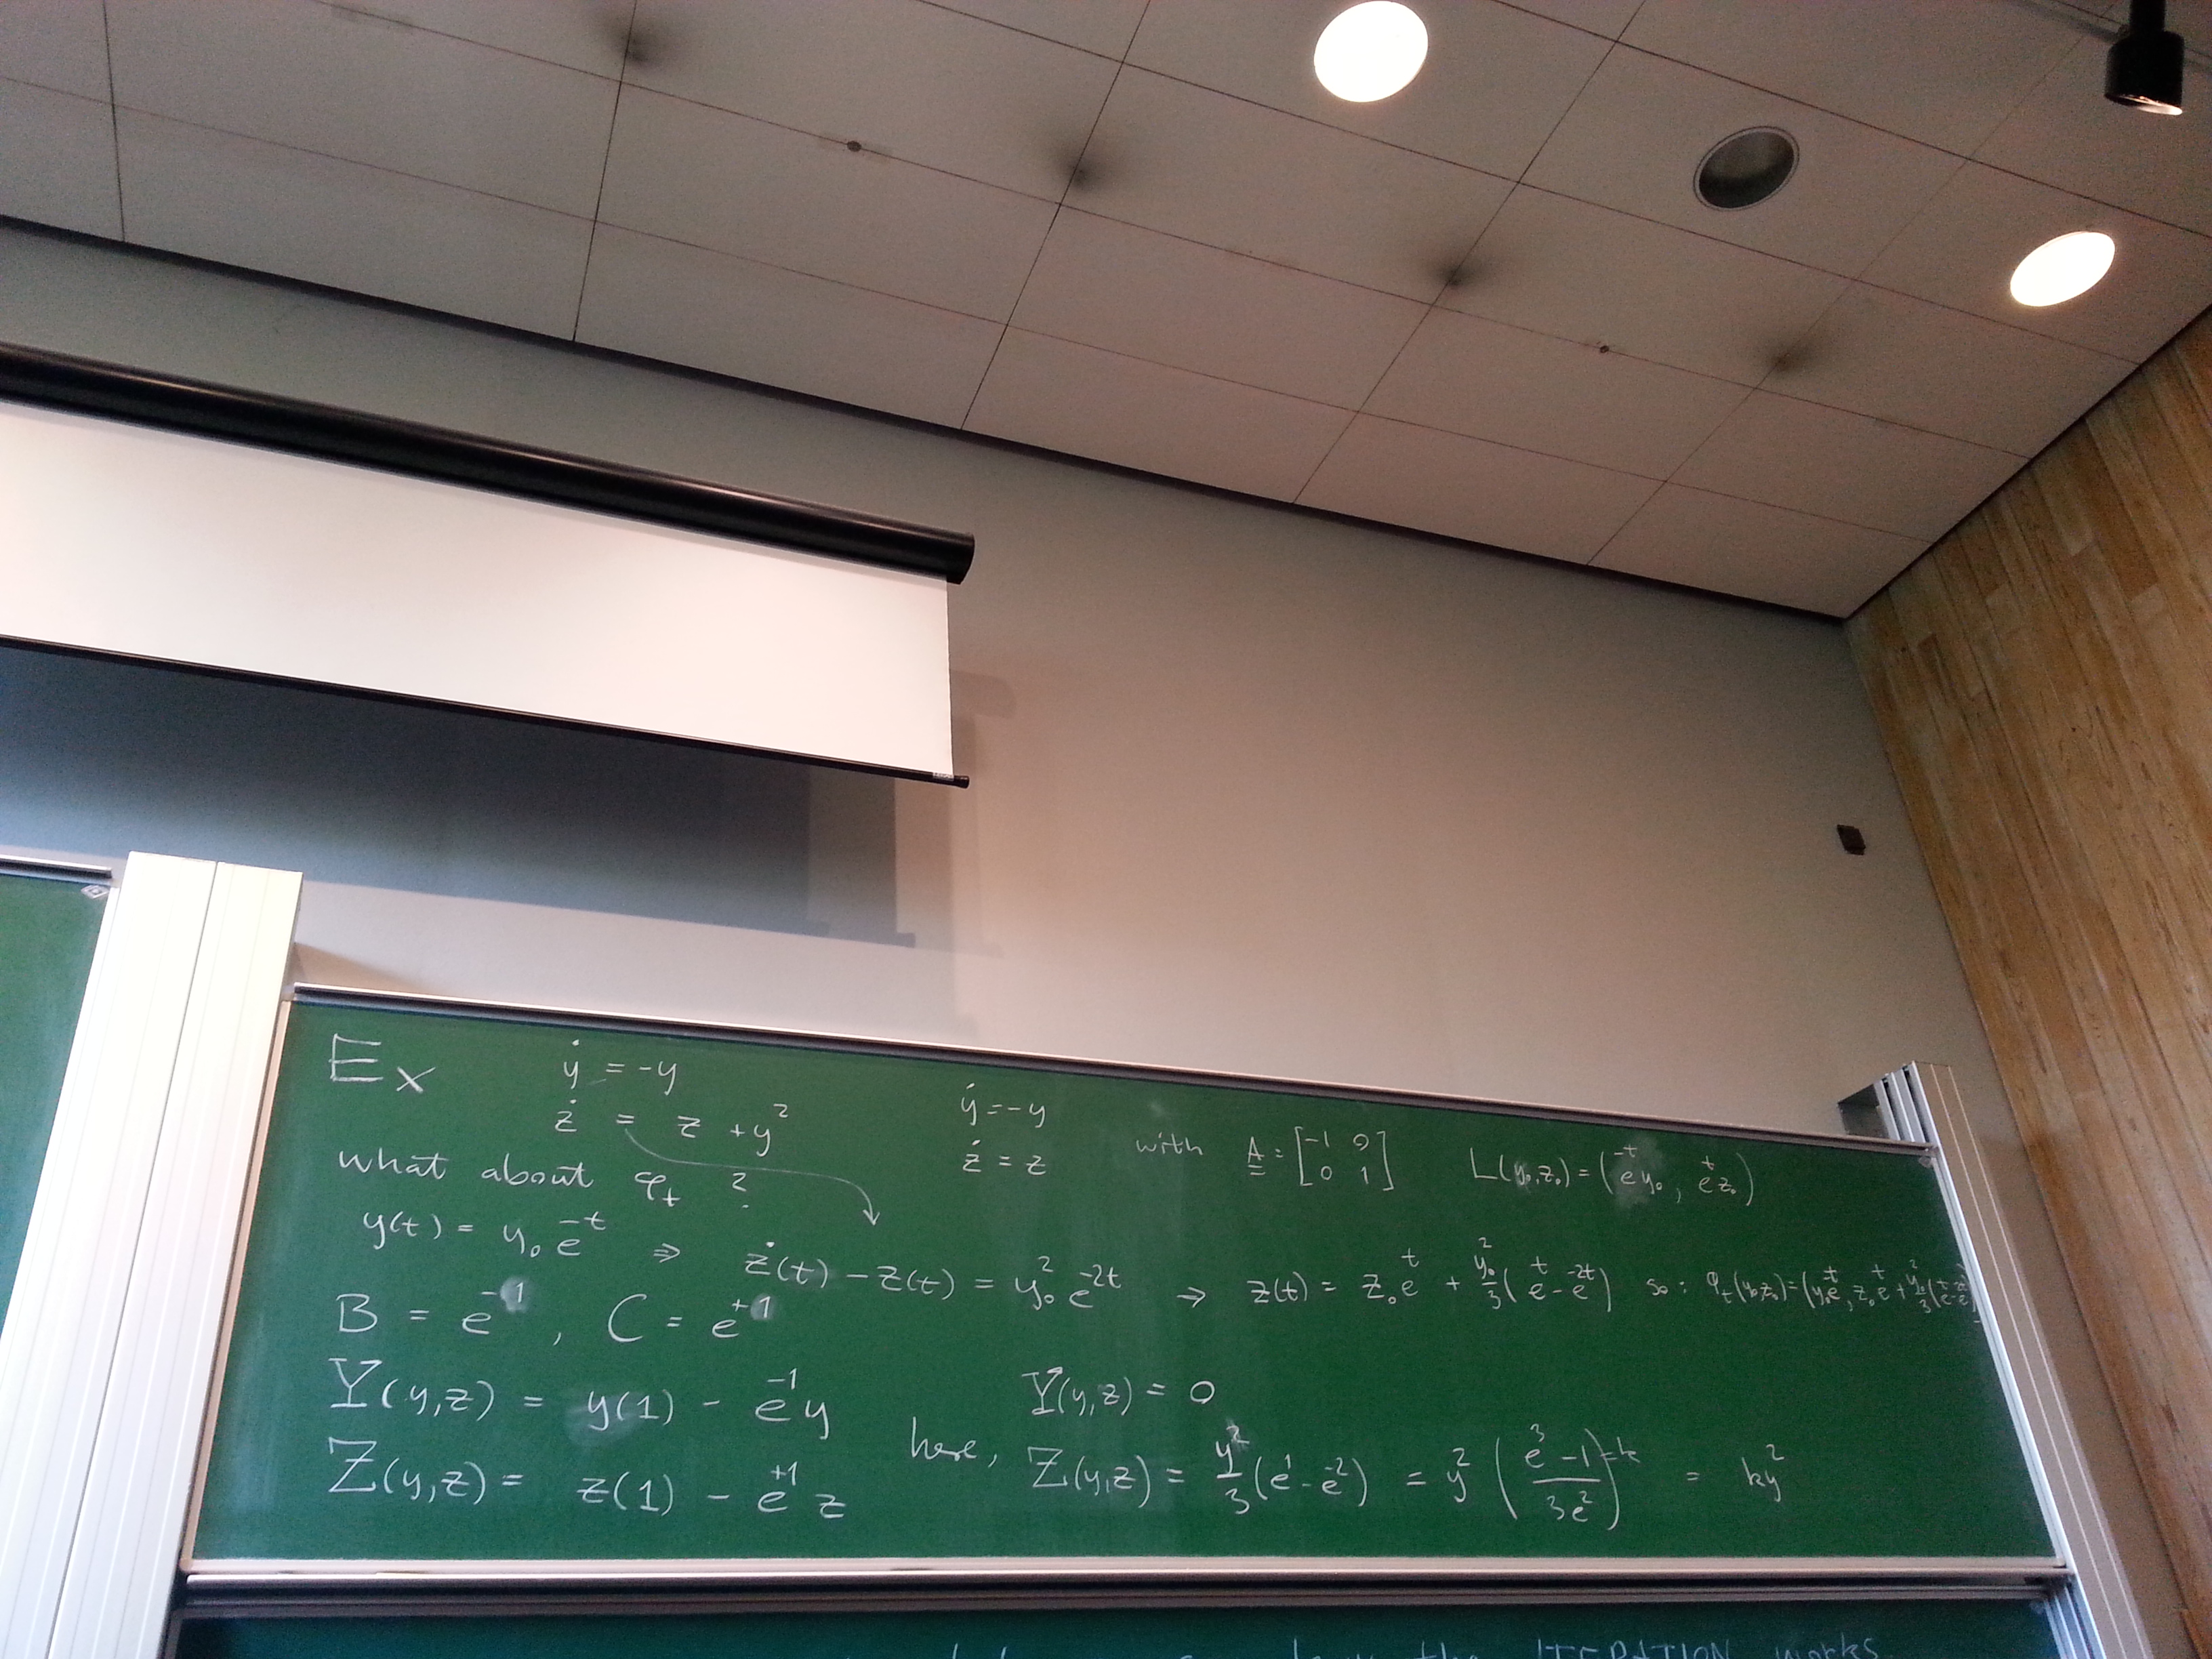 Ex ẏ = -y
ż = z + y²
ẏ = -y
ż = z
with A = [-1 0; 0 1] L(y₀,z₀) = (e^-t y₀, e^t z₀)
what about φ_t ?
y(t) = y₀ e^-t ⇒ ż(t) - z(t) = y₀² e^-2t ⇒ z(t) = z₀ e^t + y₀²/3 (e^t - e^-2t) so: φ_t(y₀,z₀) = (y₀e^-t, z₀e^t + y₀²/3 (e^t - e^-2t)
B = e^-1, C = e^+1
Y(y,z) = y(1) - e^-1 y
Z(y,z) = z(1) - e^+1 z
here, Y(y,z) = 0
Z(y,z) = y²/3 (e^1 - e^-2) = y² ((e³ - 1)/3e²) = k = ky²
the ITERATION works